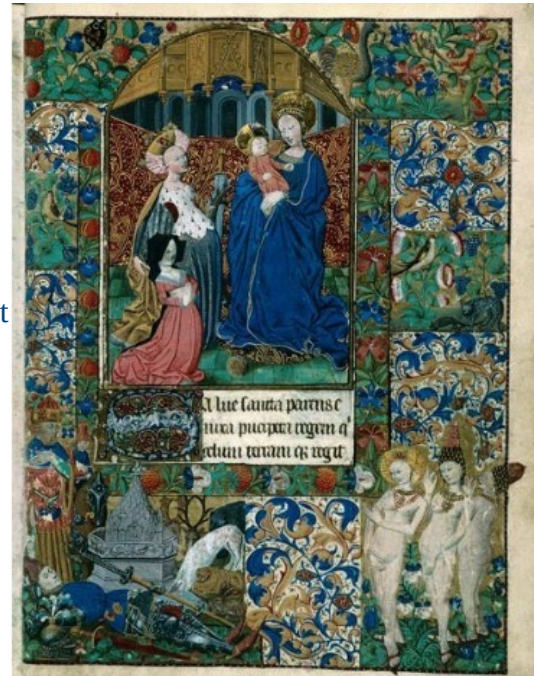 t
SAlue sancta parens e
nixa puerpera regem q'
celum terram qȝ regit